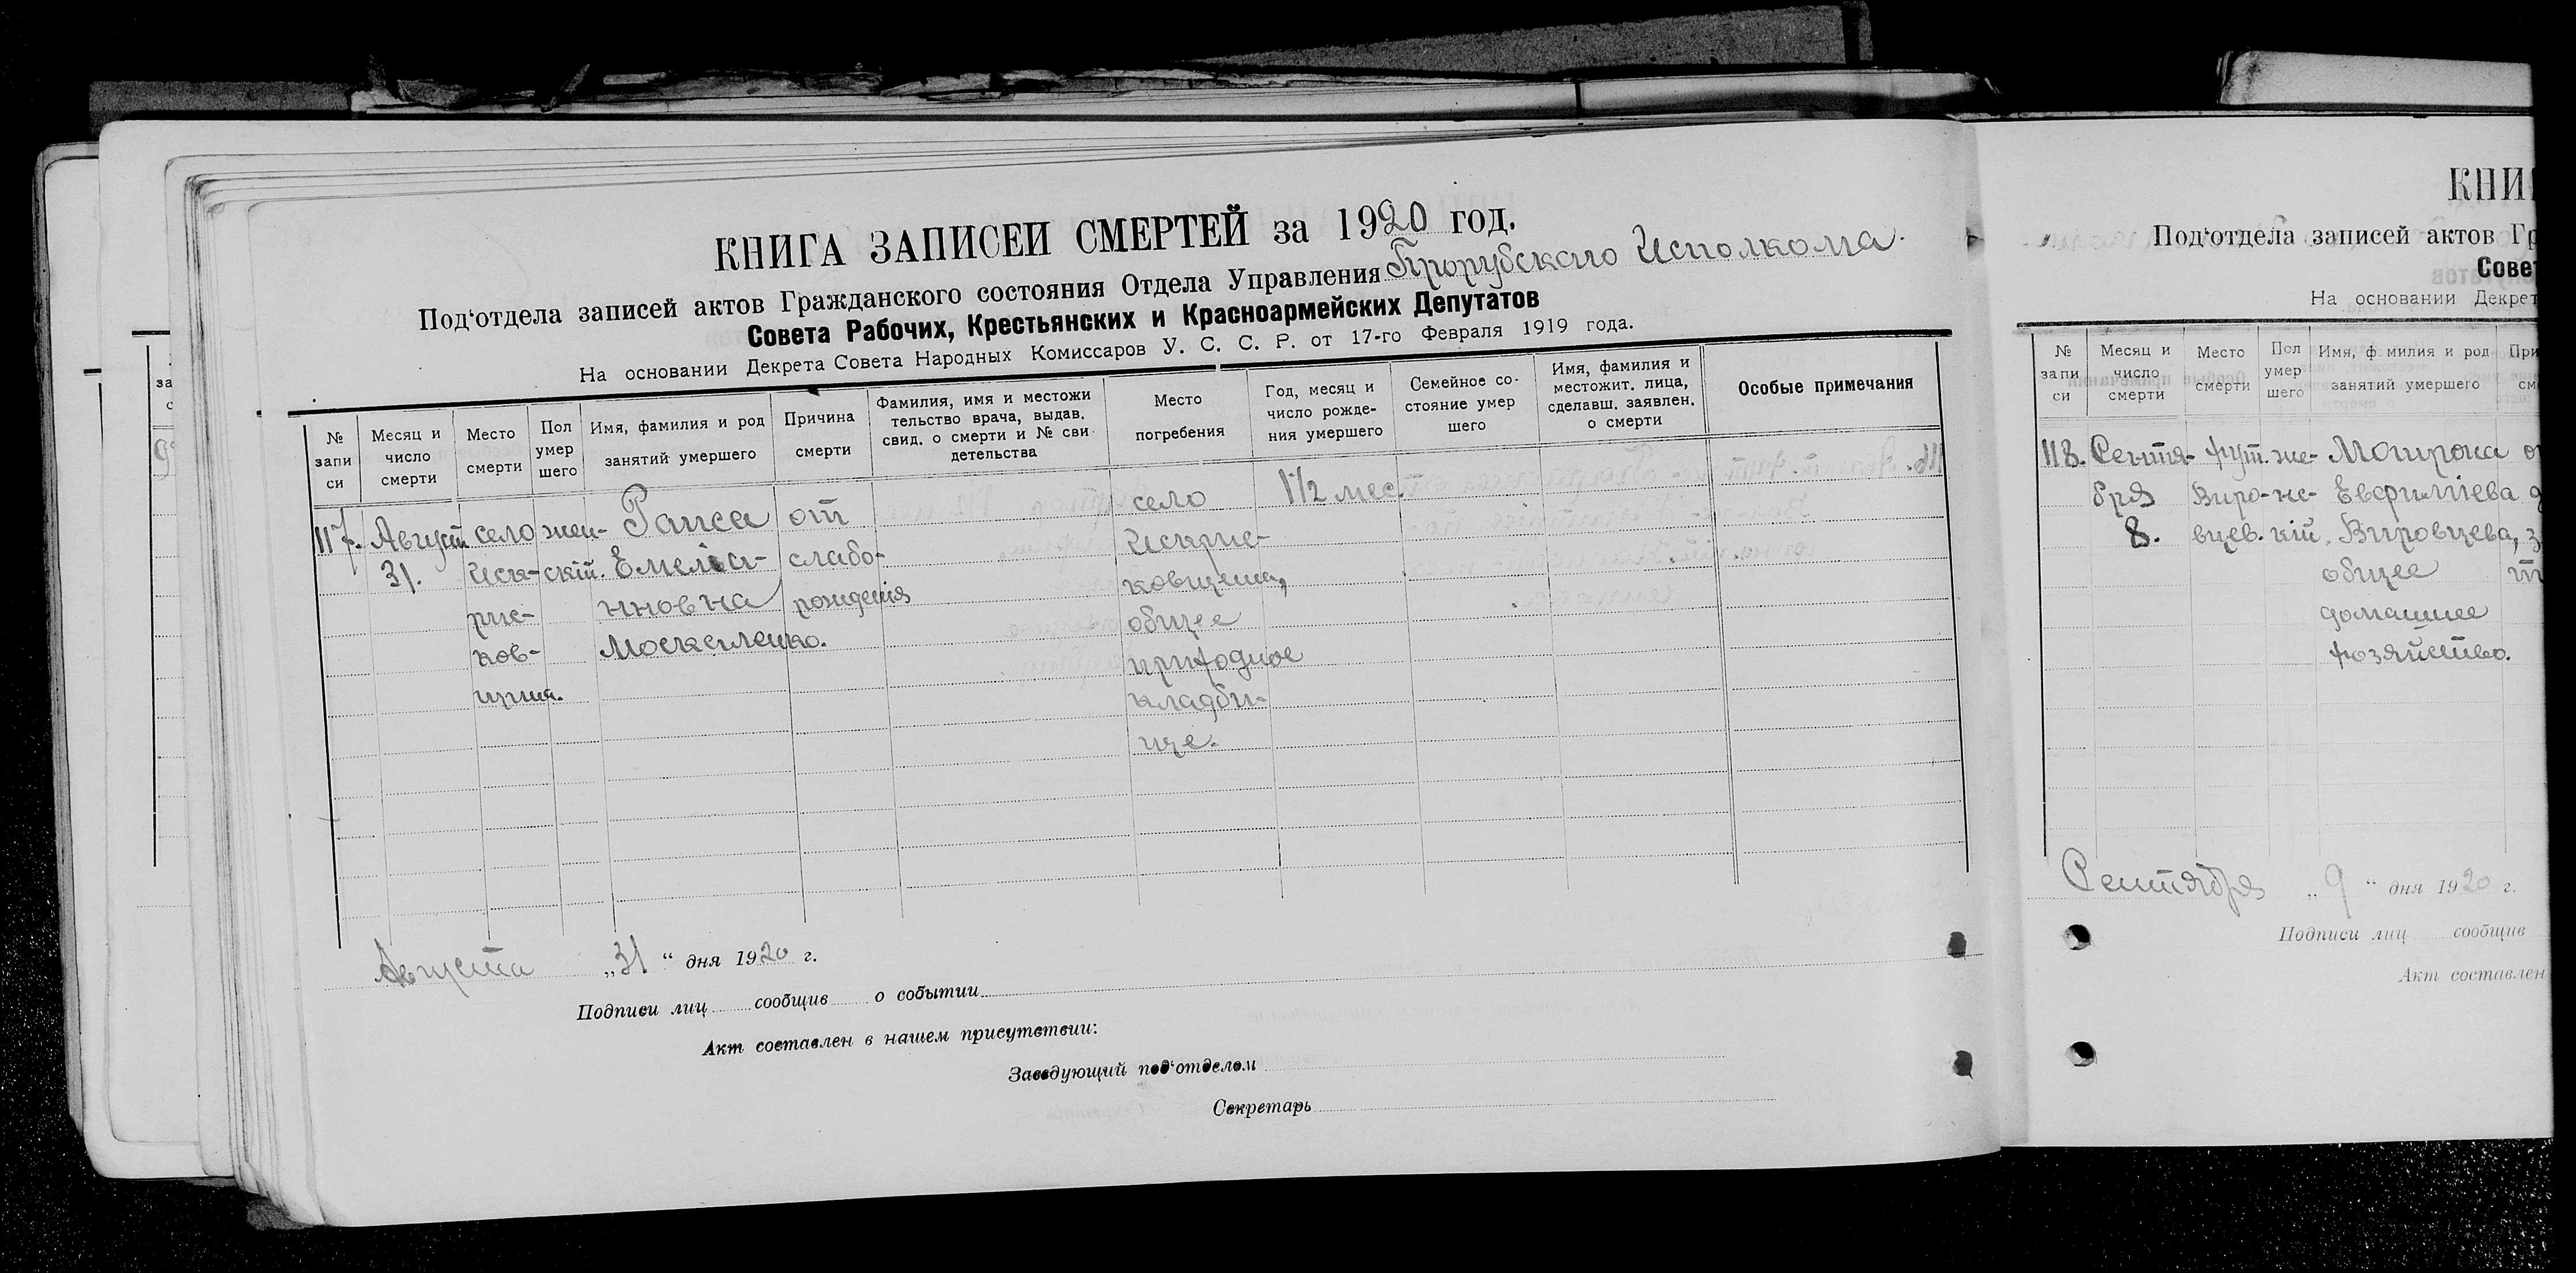 КНИГА ЗАПИСЕЙ СМЕРТЕЙ за 1920 год.
Под'отдела записей актов Гражданского состояния Отдела Управления Прорубскаго Исполкома.
Совета Рабочих, Крестьянских и Красноармейских Депутатов
На основании Декрета Совета Народных Комиссаров У. С. С. Р. от 17-го Февраля 1919 года.
№ запи си
Месяц и число смерти
Место смерти
Пол умер шего
Имя, фамилия и род занятий умершего
Причина смерти
Фамилия, имя и местожи тельство врача, выдав. свид. о смерти и № сви детельства
Место погребения
Год, месяц и число рожде- ния умершего
Семейное со- стояние умер шего
Имя, фамилия и местожит. лица, сделавш. заявлен. о смерти
Особые примечания
117.
Август
31.
село
Иск-
рис-
ков-
щина.
жен-
скій.
Раиса
Емелiа-
нновна
Москаленко.
от
слабо-
рожденія
село
Искрис-
ковщина,
общее
приходное
кладби-
ще.
1 1/2 мес.
Августа „31“ дня 1920 г.
Подписи лиц сообщив о событии
Акт составлен в нашем присутствии:
Заведующий под'отделом
Секретарь
КНИГ
Под'отдела записей актов Гр
Совет
На основании Декрет
№ запи си
Месяц и число смерти
Место смерти
Пол умер шего
Имя, ф милия и род занятий умершего
При
см
118.
Сентя-
бря
8.
хут.
Виро-
вцев.
же-
нс-
кій.
Мотрона
Евфиміева
Вировцева,
общее
домашнее
хозяйство.
Сентября „9“ дня 1920 г.
Подписи лиц сообщив
Акт составлен